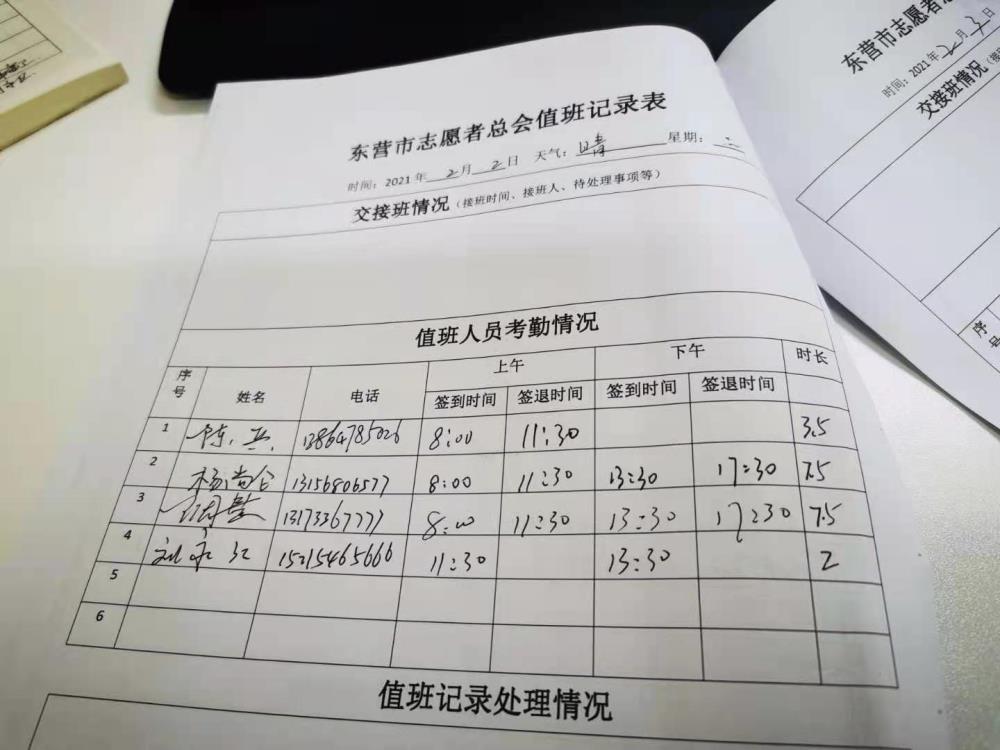 东营市志愿者总会值班记录表
时间：2021年 2月 2日 天气：晴 星期：二
交接班情况（接班时间、接班人、待处理事项等）
值班人员考勤情况
序号 姓名 电话 上午 下午 时长
签到时间 签退时间 签到时间 签退时间
1 13864785026 8:00 11:30 3.5
2 杨尚合 13156806577 8:00 11:30 13:30 17:30 7.5
3 13173367777 8:00 11:30 13:30 17:30 7.5
4 15215465666 11:30 13:30 2
5
6
值班记录处理情况
东营市志愿者
时间：2021年2月3日
交接班情况
序号